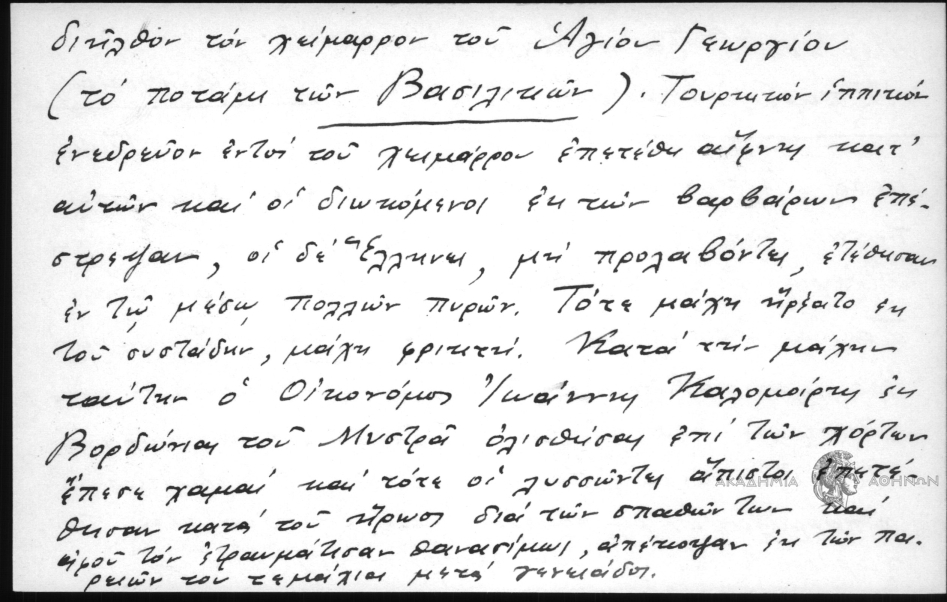 διῆλθον τόν χείμαρρον τοῦ Ἁγίου Γεωργίου
(τό ποτάμι τῶν Βασιλικῶν). Τουρκικόν ἱππικόν
ἐνεδρεῦον ἐντός τοῦ χειμάρρου ἐπετέθη αἴφνης κατ'
αὐτῶν καί οἱ διωκόμενοι ἐκ τῶν βαρβάρων ἐπέ-
στρεψαν, οἱ δέ Ἕλληνες, μή προλαβόντες, ἐτέθησαν
ἐν τῷ μέσῳ πολλῶν πυρῶν. Τότε μάχη ἤρξατο ἐκ
τοῦ συστάδην, μάχη φρικτή. Κατά τήν μάχην
ταύτην ὁ Οἰκονόμος Ἰωάννης Καλομοίρης ἐκ
Βορδώνιας τοῦ Μυστρᾶ ὀλισθήσας ἐπί τῶν χόρτων
ἔπεσε χαμαί καί τότε οἱ λυσσῶντες ἄπιστοι ἐπετέ-
ΑΚΑΔΗΜΙΑ ΑΘΗΝΩΝ
θησαν κατά τοῦ ἥρωος διά τῶν σπαθῶν των καί
ἀφοῦ τόν ἐτραυμάτισαν θανασίμως, ἀπέκοψαν ἐκ τῶν πα-
ρειῶν του τεμάχια μετά γενειάδος.